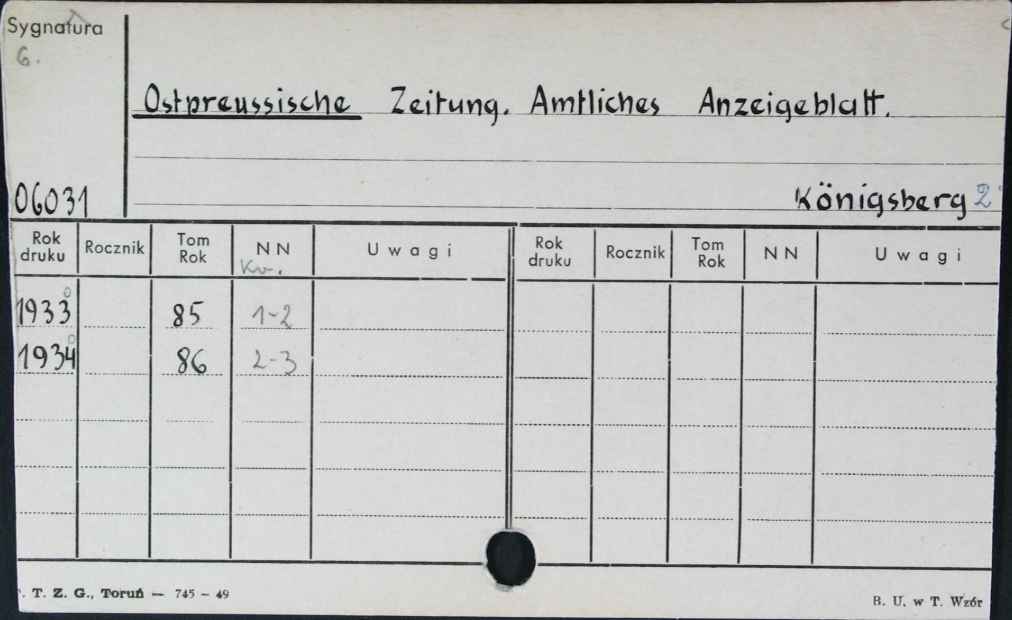 Sygnatura
G.
Ostpreussische Zeitung. Amtliches Anzeigeblatt.
06031
Königsberg 2
Rok druku Rocznik Tom Rok NN Uwagi Rok druku Rocznik Tom Rok NN Uwagi
Kw.
1933 85 1-2
1934 86 2-3
. T. Z. G., Toruń — 745 - 49
B. U. w T. Wzór